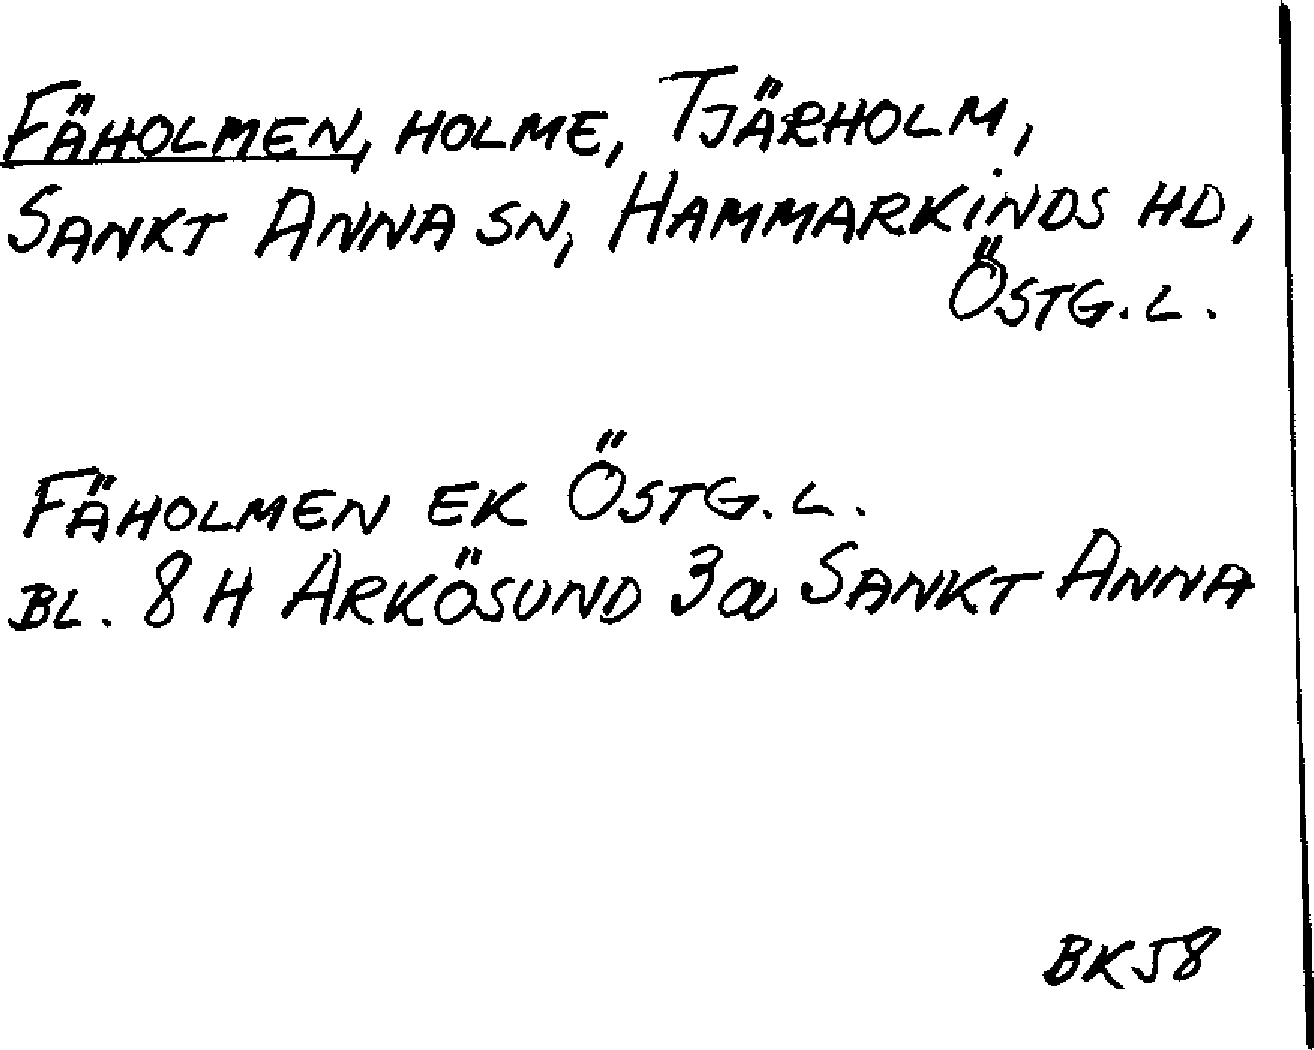 FÄHOLMEN, HOLME, TJÄRHOLM,
SANKT ANNA SN, HAMMARKINDS HD,
ÖSTG.L.
FÄHOLMEN EK ÖSTG.L.
BL. 8H ARKÖSUND 3a SANKT ANNA
BK58